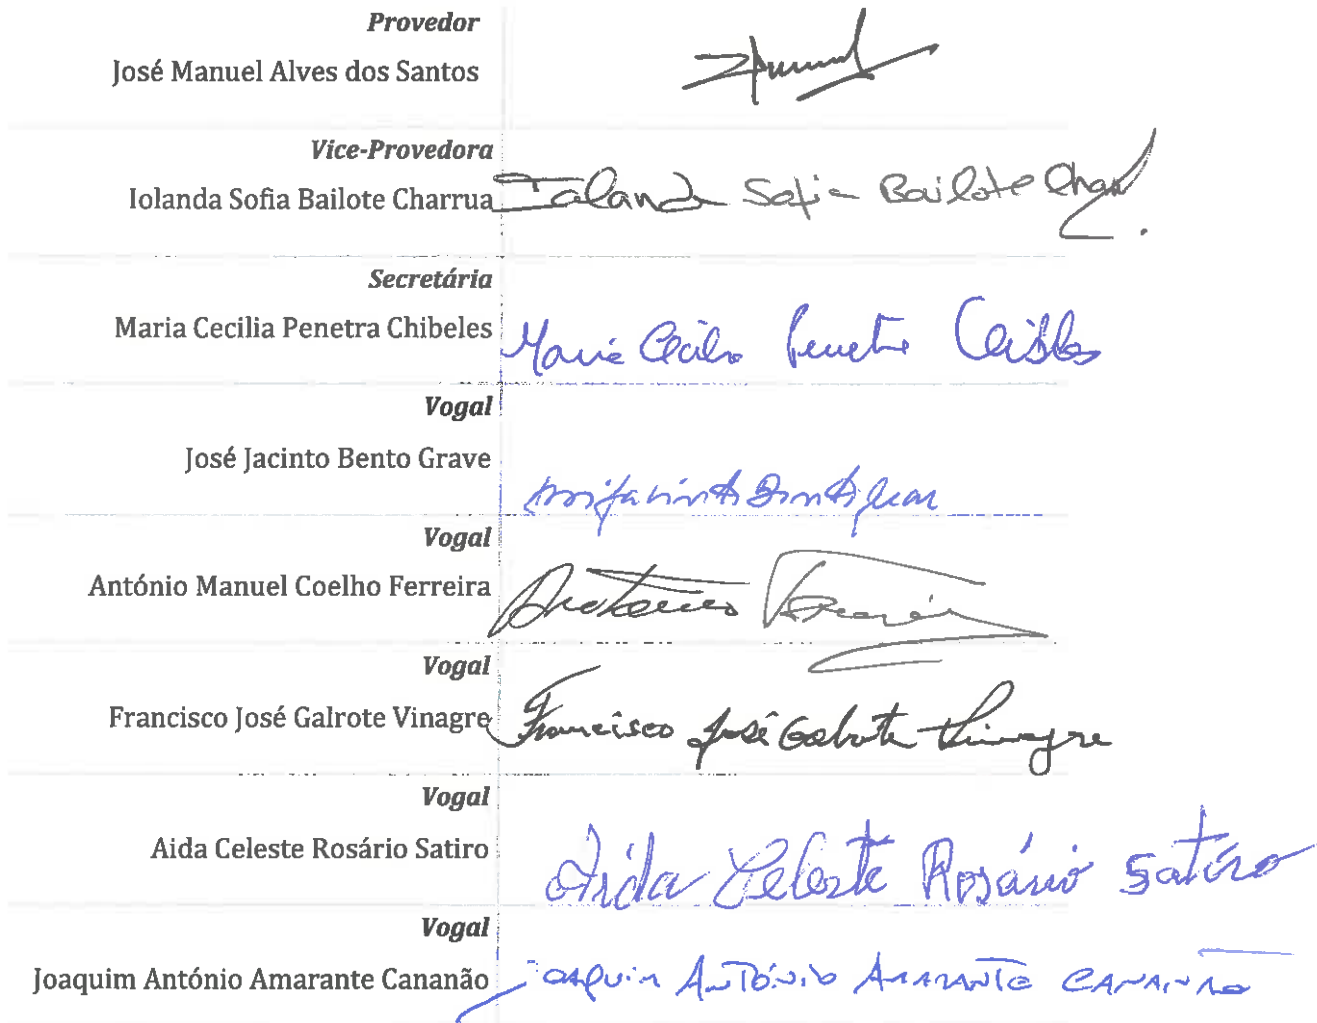 Provedor
José Manuel Alves dos Santos
Vice-Provedora
Iolanda Sofia Bailote Charrua Iolanda Sofia Bailote Char
Secretária
Maria Cecilia Penetra Chibeles Maria Cecilia Penetra Chibeles
Vogal
José Jacinto Bento Grave
Vogal
António Manuel Coelho Ferreira António Ferreira
Vogal
Francisco José Galrote Vinagre Francisco José Galrote Vinagre
Vogal
Aida Celeste Rosário Satiro Aida Celeste Rosário Satiro
Vogal
Joaquim António Amarante Cananão Joaquim António Amarante Cananão